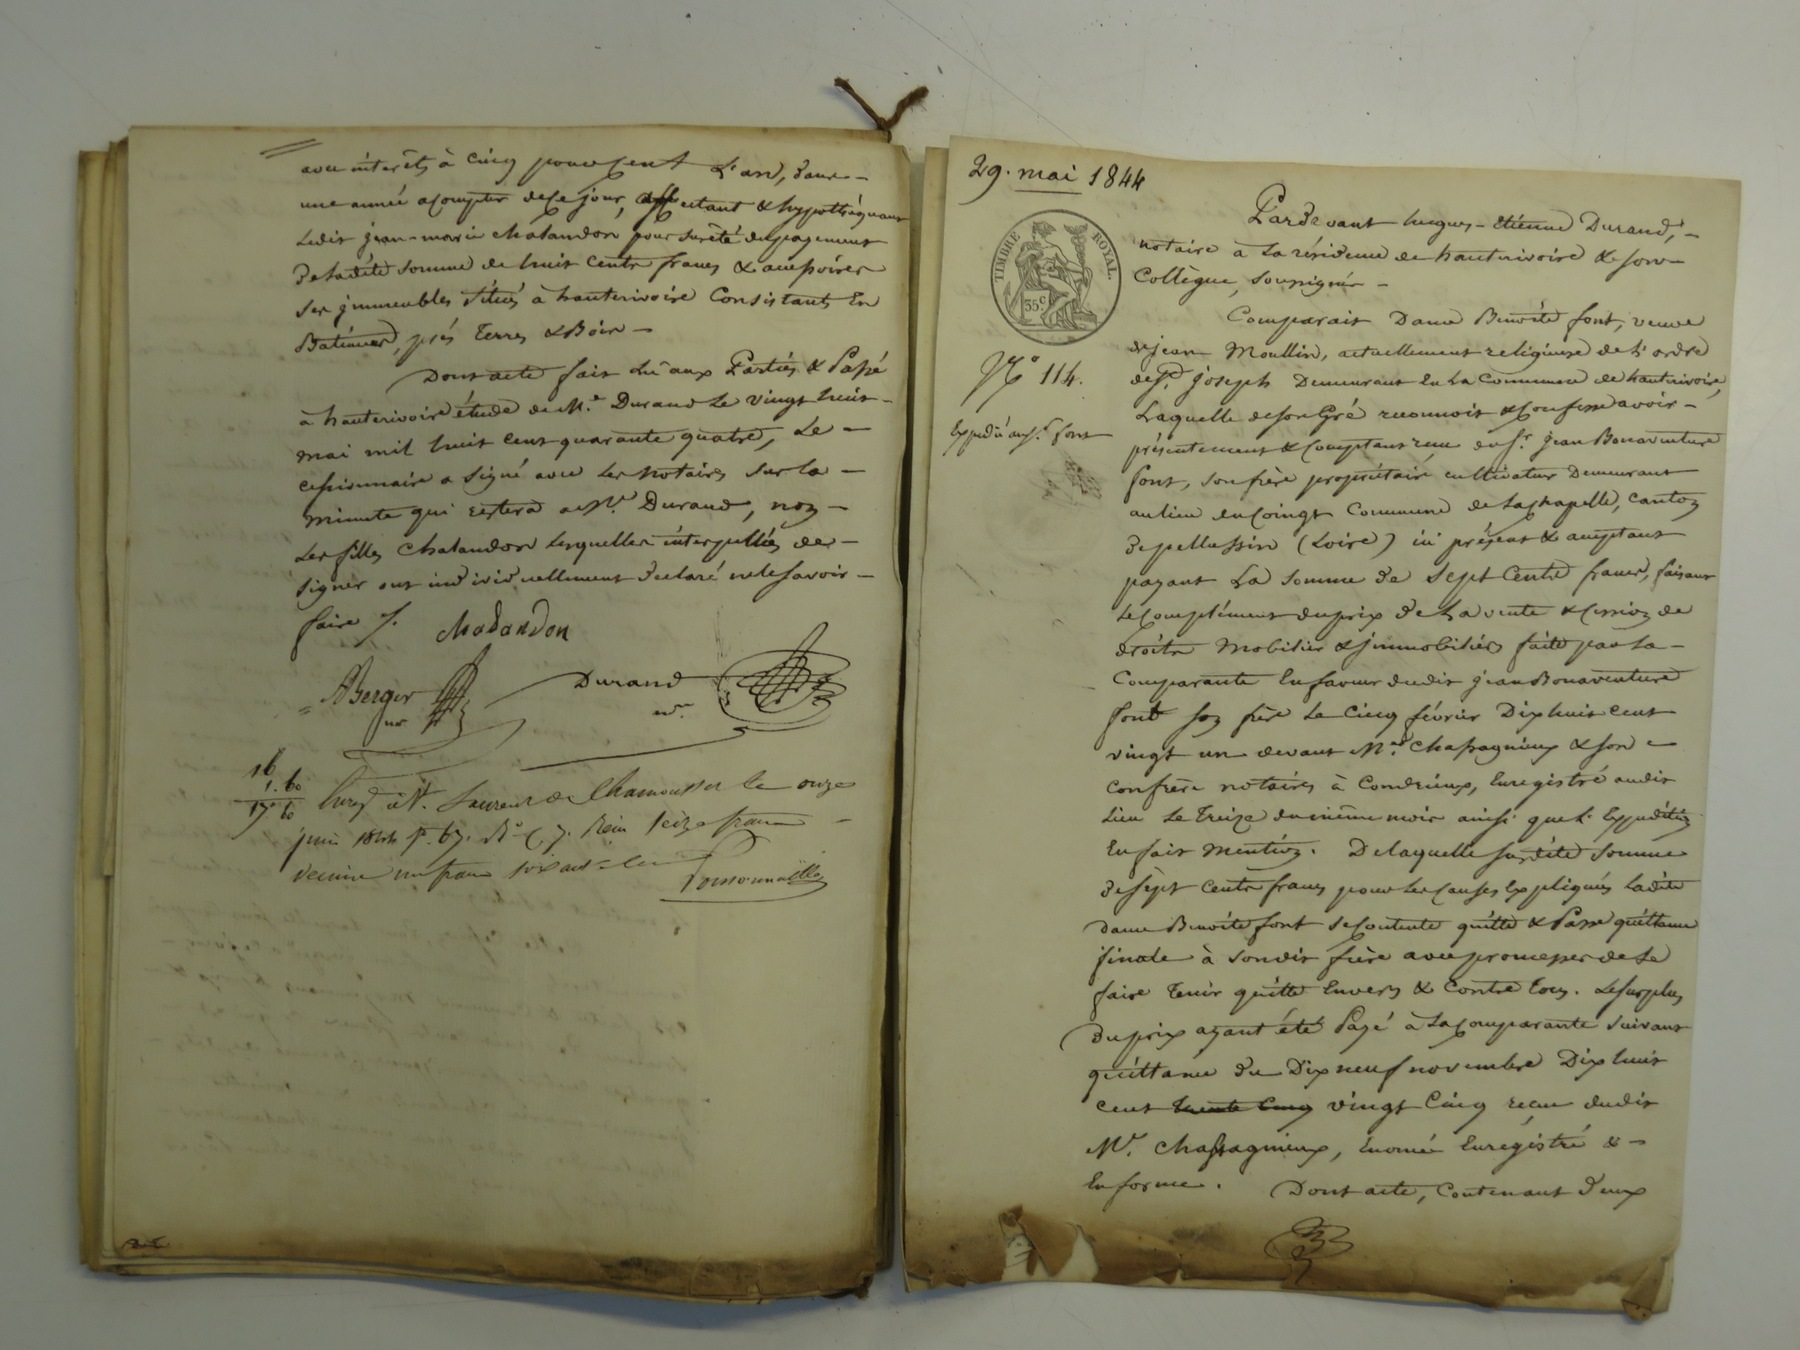 avec intérêts à cinq pour cent L'an, dans
une année acompter de ce jour, affectant & hypothéquant
Ledit jean-marie chalandon pour sureté du payement
de ladite somme de huit cents francs & accessoires
ses jmmeubles situés à hauterivoire Consistant En
Batiments, prés Terres & Bois
Dont acte fait Lu aux Parties & Passé
à hauterivoire étude de M.e Durand Le vingt huit
mai mil huit cent quarante quatre, Le
cessionnaire a signé avec Les Notaires sur la
minute qui restera a M.e Durand, non
Les filles chalandon Lesquelles interpellées de
signer ont individuellement déclaré ne le savoir
faire /.
Chalandon
ABerger
nre
Durand
nre
16
1. 60
17. 60
Enreg à St. Laurent de Chamousset le onze
juin 1844 f. 67. Ro C 7. Reçu seize francs
décime un franc soixante cent
29. mai 1844
TIMBRE ROYAL
35 c
No 114.
Expédié au Sr. font
Pardevant hugues-étienne Durand,
notaire à La résidence de hauterivoire & son
Collègue, soussignés
Comparait Dame Benoîte font, veuve
de jean Moullin, actuellement religieuse de L'ordre
de St. joseph Demeurant En La Commune de hauterivoire,
Laquelle de son Gré reconnoit & Confesse avoir
présentement & Comptant reçu du Sr. jean Bonaventure
font, son frère propriétaire cultivateur Demeurant
au lieu du Coingt Commune de Lachapelle, Canton
de pellussin (Loire) ici présent & acceptant
payant La somme de sept Cents francs, faisant
Le Complément du prix de La vente & Cession de
droits Mobiliers & jmmobiliers faite par La
Comparante En faveur dudit jean Bonaventure
font son frère Le Cinq février Dix huit cent
vingt un devant M.e Chassagnieux & son
confrère notaires à Condrieux, Enregistré audit
Lieu Le Treize du même mois ainsi que L'Expédition
En fait Mention. De laquelle susdite somme
de sept Cents francs pour Les Causes Expliquées Ladite
Dame Benoîte font se Contente quitte & Passe quittance
finale à son dit frère avec promesses de Le
faire Tenir quitte Envers & Contre Tous. Le surplus
du prix ayant été Payé à La Comparante suivant
quittance du Dix neuf novembre Dix huit
cent trente cinq vingt Cinq reçue dudit
M.e Chassagnieux, Enregistré &
En forme.
Dont acte, Contenant deux